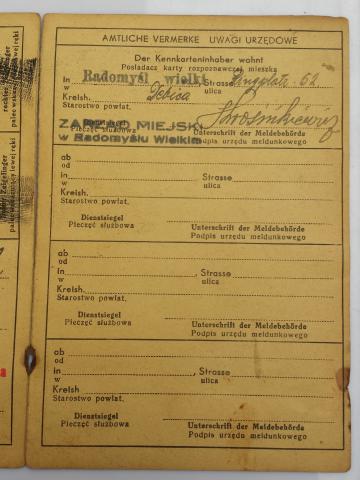 AMTLICHE VERMERKE UWAGI URZĘDOWE
Der Kennkarteninhaber wohnt
Posiadacz karty rozpoznawczej mieszka
in Radomyśl wielki, Strasse 62
w ulica
Kreish. Dębica
Starostwo powiat.
ZARZĄD MIEJSKI
Dienstsiegel Unterschrift der Meldebehörde
Pieczęć służbowa Podpis urzędu meldunkowego
w Radomyślu Wielkim
ab
od
in, Strasse
w ulica
Kreish.
Starostwo powiat.
Dienstsiegel Unterschrift der Meldebehörde
Pieczęć służbowa Podpis urzędu meldunkowego
ab
od
in, Strasse
w ulica
Kreish.
Starostwo powiat.
Dienstsiegel Unterschrift der Meldebehörde
Pieczęć służbowa Podpis urzędu meldunkowego
ab
od
in, Strasse
w ulica
Kreish
Starostwo powiat.
Dienstsiegel Unterschrift der Meldebehörde
Pieczęć służbowa Podpis urzędu meldunkowego